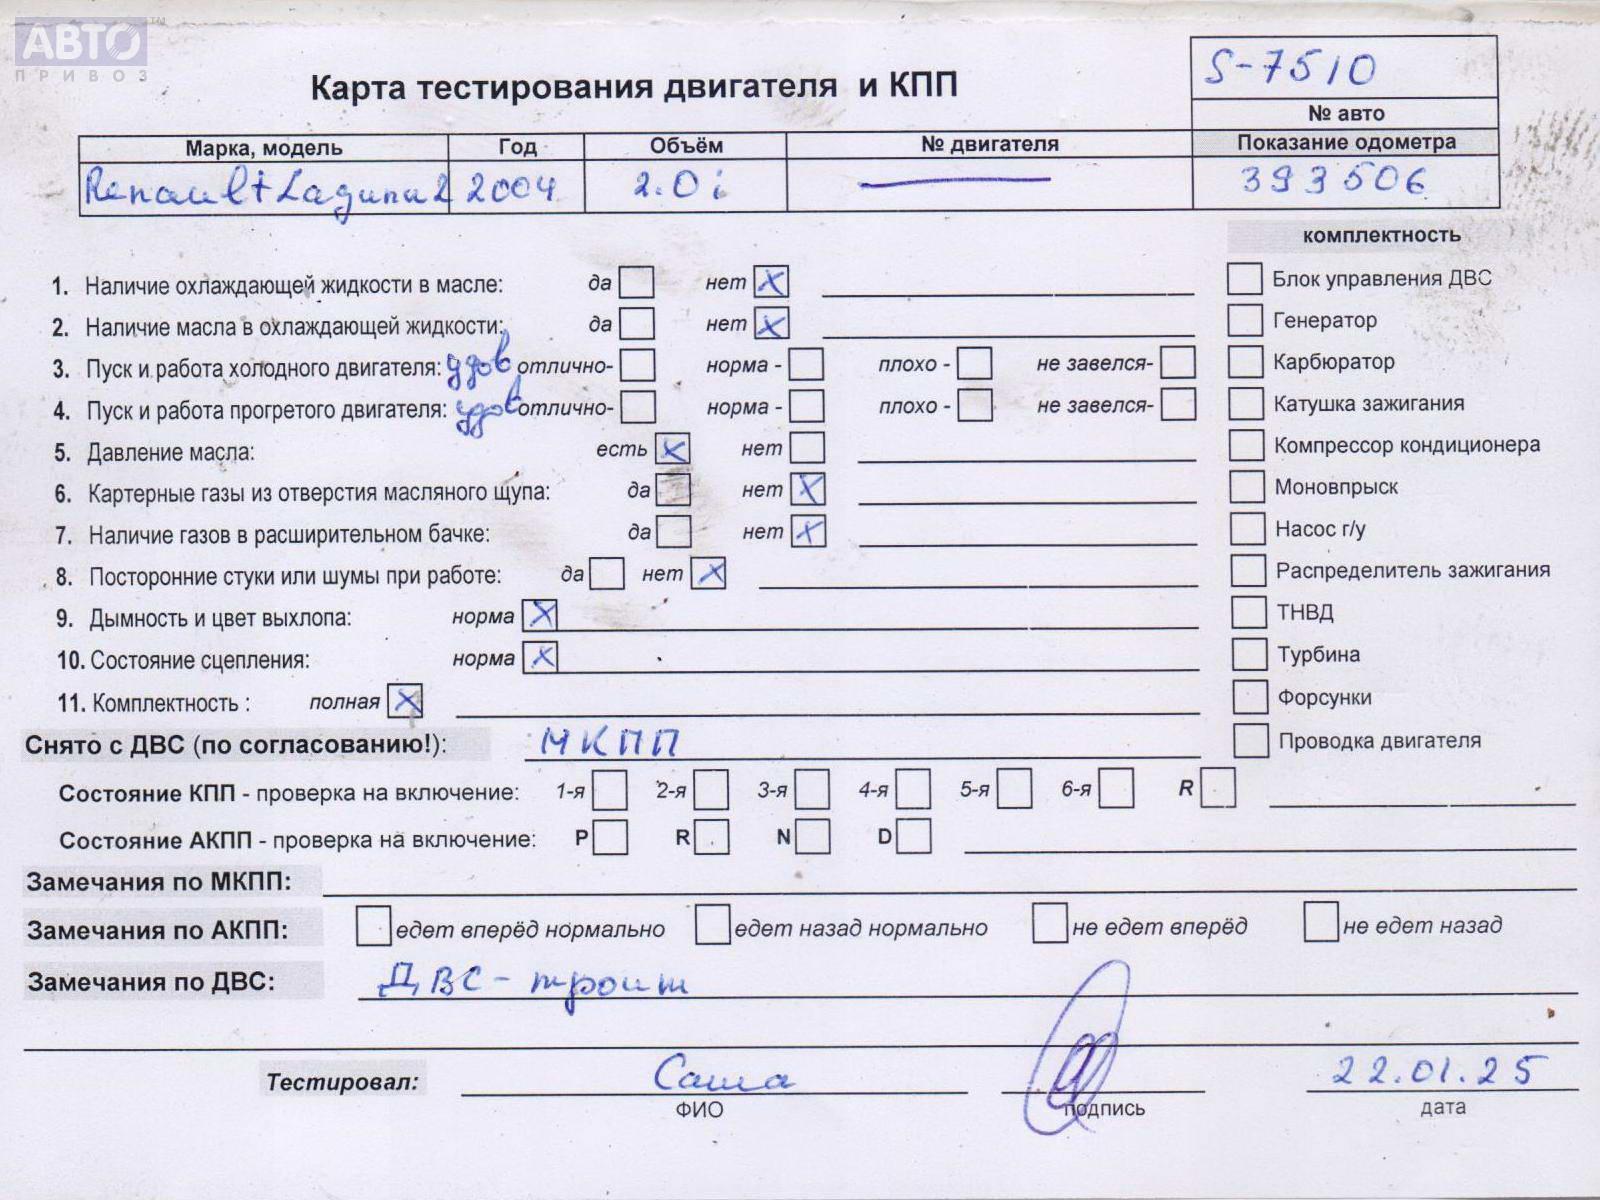 АВТО
ПРИВОЗ
S-7510
Карта тестирования двигателя и КПП
№ авто
Марка, модель Год Объём № двигателя Показание одометра
Renault Laguna 2 2004 2.0 i 393506
комплектность
1. Наличие охлаждающей жидкости в масле: да нет X Блок управления ДВС
2. Наличие масла в охлаждающей жидкости: да нет X Генератор
3. Пуск и работа холодного двигателя: удов отлично- норма - плохо - не завелся- Карбюратор
4. Пуск и работа прогретого двигателя: удов отлично- норма - плохо - не завелся- Катушка зажигания
5. Давление масла: есть X нет Компрессор кондиционера
6. Картерные газы из отверстия масляного щупа: да нет X Моновпрыск
7. Наличие газов в расширительном бачке: да нет X Насос г/у
8. Посторонние стуки или шумы при работе: да нет X Распределитель зажигания
9. Дымность и цвет выхлопа: норма X ТНВД
10. Состояние сцепления: норма X Турбина
11. Комплектность : полная X Форсунки
Снято с ДВС (по согласованию!): МКПП Проводка двигателя
Состояние КПП - проверка на включение: 1-я 2-я 3-я 4-я 5-я 6-я R
Состояние АКПП - проверка на включение: P R N D
Замечания по МКПП:
Замечания по АКПП: едет вперёд нормально едет назад нормально не едет вперёд не едет назад
Замечания по ДВС: ДВС - троит
Тестировал: Саша 22.01.25
ФИО подпись дата